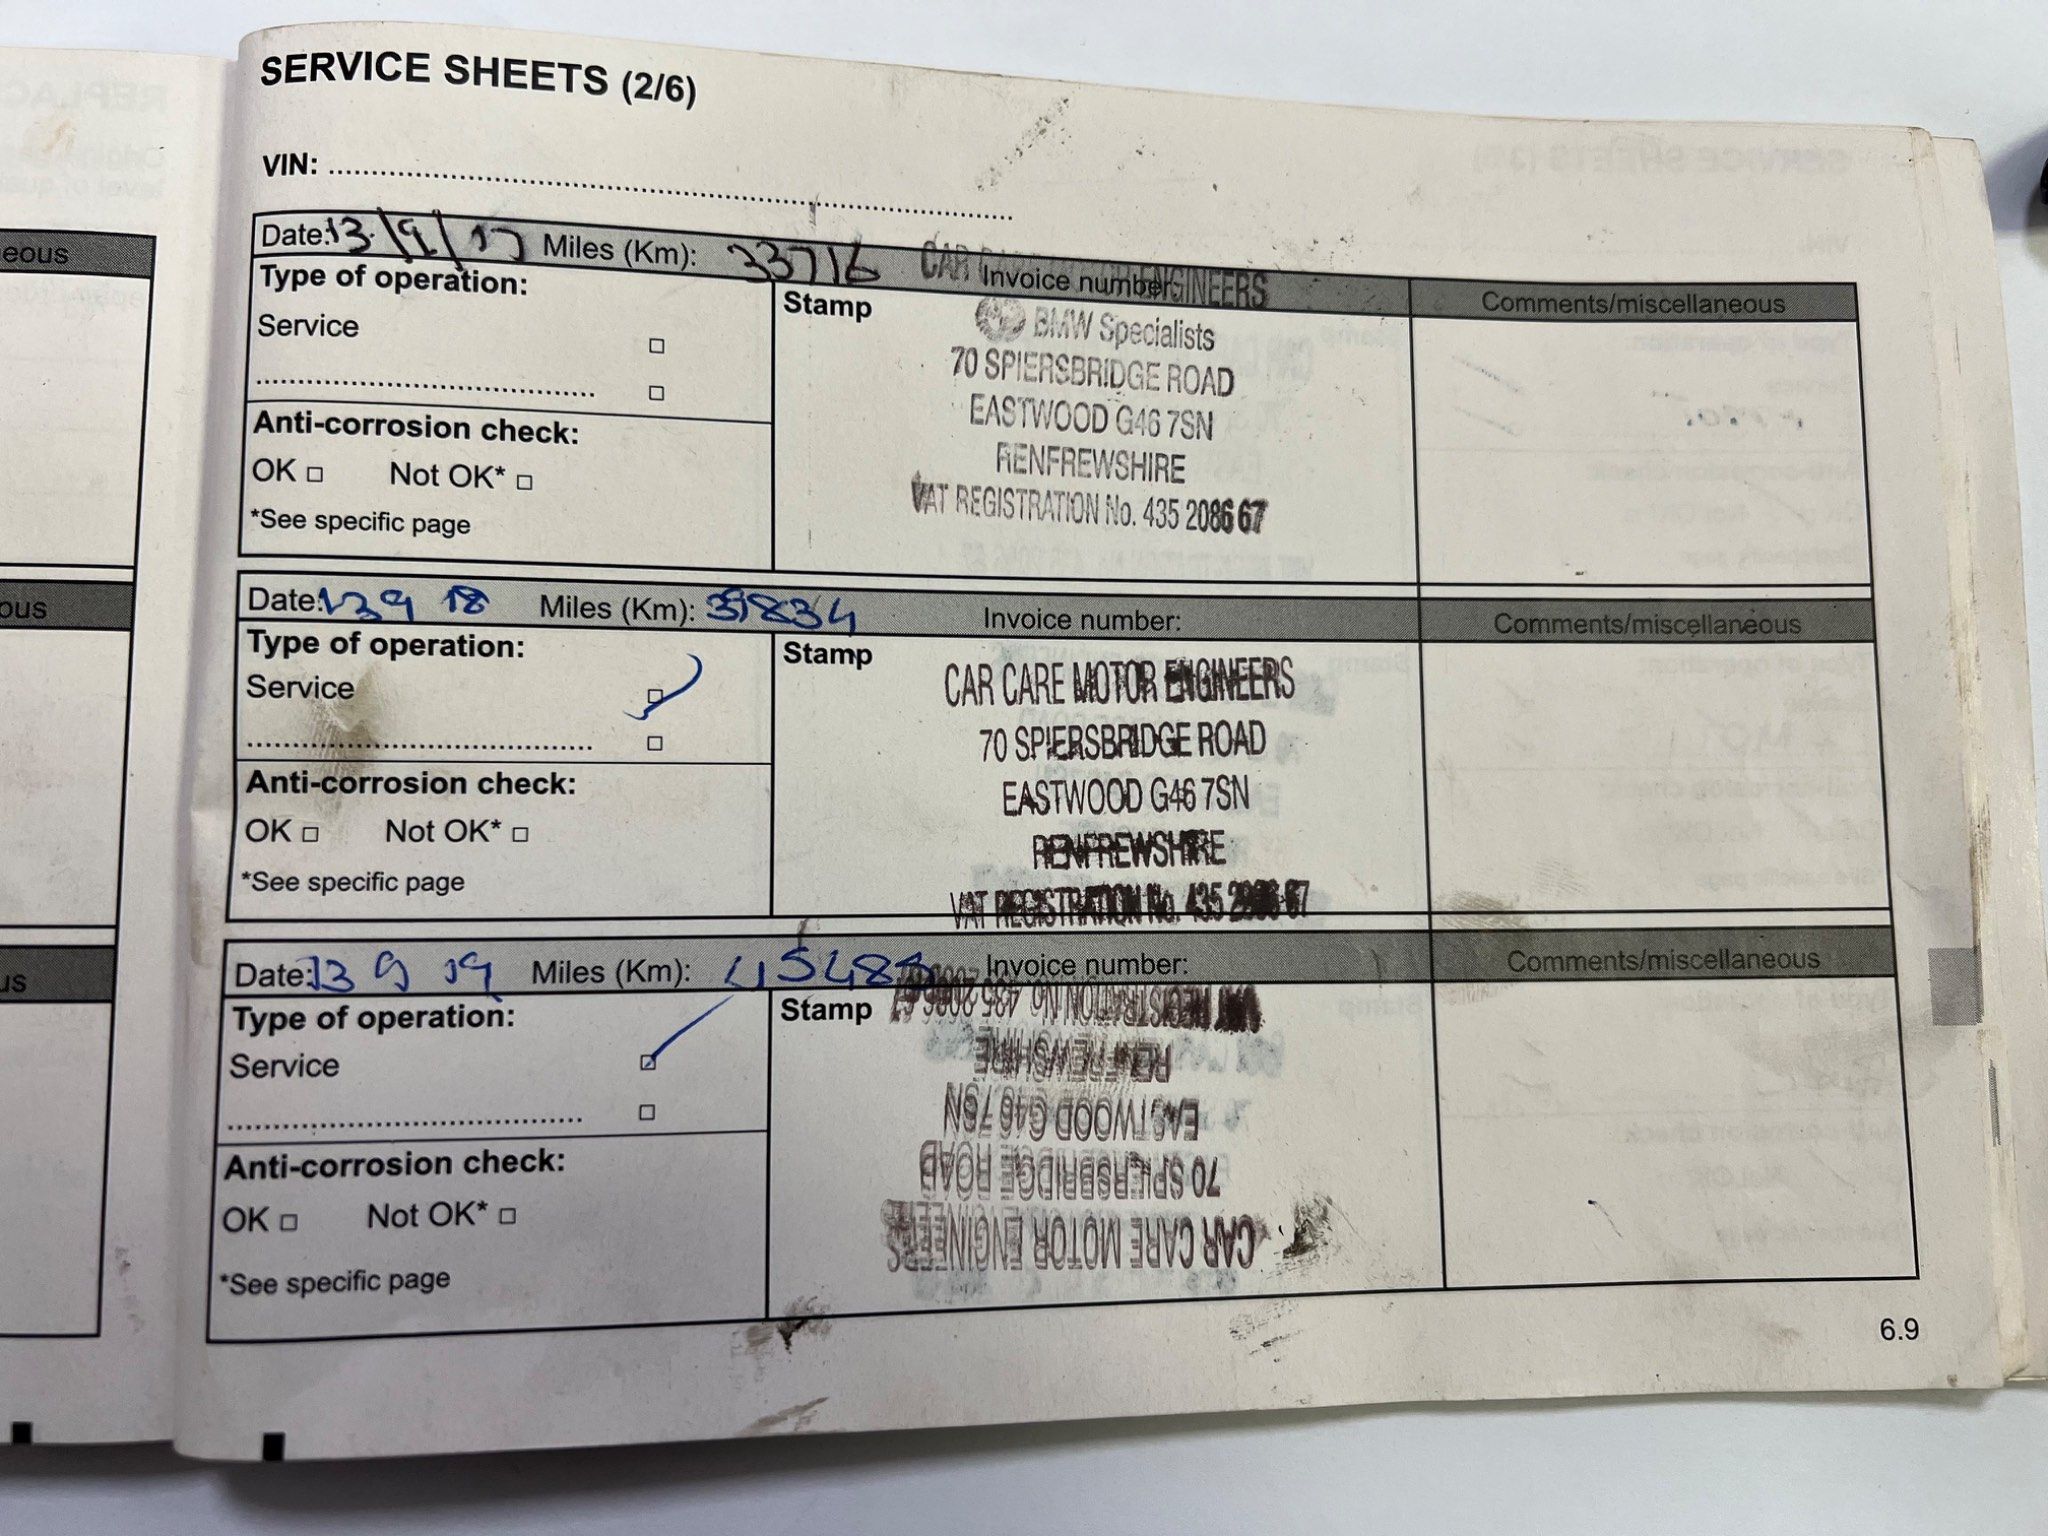 SERVICE SHEETS (2/6)
VIN:
Date: 13/9/17 Miles (Km): 33716 Invoice number:
Comments/miscellaneous
Type of operation:
Service
Anti-corrosion check:
OK Not OK*
*See specific page
Stamp
CAR CARE MOTOR ENGINEERS
BMW Specialists
70 SPIERSBRIDGE ROAD
EASTWOOD G46 7SN
RENFREWSHIRE
VAT REGISTRATION No. 435 2086 67
Date: 13 9 18 Miles (Km): 39834 Invoice number:
Comments/miscellaneous
Type of operation:
Service
Anti-corrosion check:
OK Not OK*
*See specific page
Stamp
CAR CARE MOTOR ENGINEERS
70 SPIERSBRIDGE ROAD
EASTWOOD G46 7SN
RENFREWSHIRE
VAT REGISTRATION No. 435 2086 67
Date: 13 9 19 Miles (Km): 45488 Invoice number:
Comments/miscellaneous
Type of operation:
Service
Anti-corrosion check:
OK Not OK*
*See specific page
Stamp
CAR CARE MOTOR ENGINEERS
70 SPIERSBRIDGE ROAD
EASTWOOD G46 7SN
RENFREWSHIRE
VAT REGISTRATION No. 435 2086 67
6.9